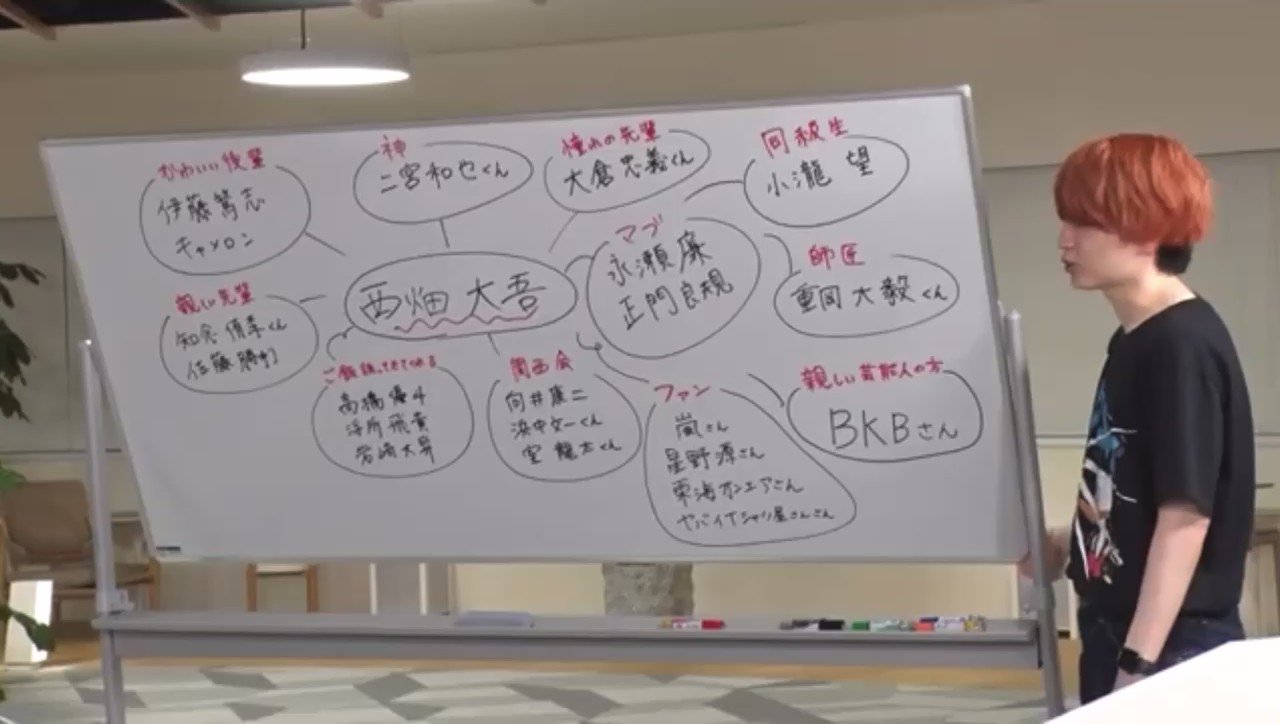 かわいい後輩
伊藤篤志
キャメロン
神
二宮和也くん
憧れの先輩
大倉忠義くん
同級生
小瀧 望
親しい先輩
知念侑李くん
佐藤勝利
西畑 大吾
マブ
永瀬 廉
正門良規
師匠
重岡大毅くん
高橋優斗
浮所飛貴
岩﨑大昇
関西会
向井康二
浜中文一くん
室 龍太くん
ファン
嵐さん
星野源さん
東海オンエアさん
ヤバイTシャツ屋さんさん
親しい芸能人の方
BKBさん